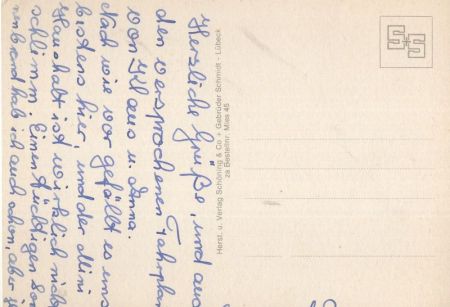 Herzliche Grüße, und auc
den versprochenen Fahrplan
von u. Anna.
Nach wie vor gefällt es uns
bestens hier, und der Mini
Haushalt ist wirklich nich
schlimm. Einen tüchtigen Son
nenbrand hab ich auch schon, aber
Herst. u. Verlag Schöning & Co + Gebrüder Schmidt - Lübeck
za Bestellnr. Mies 45
S+S